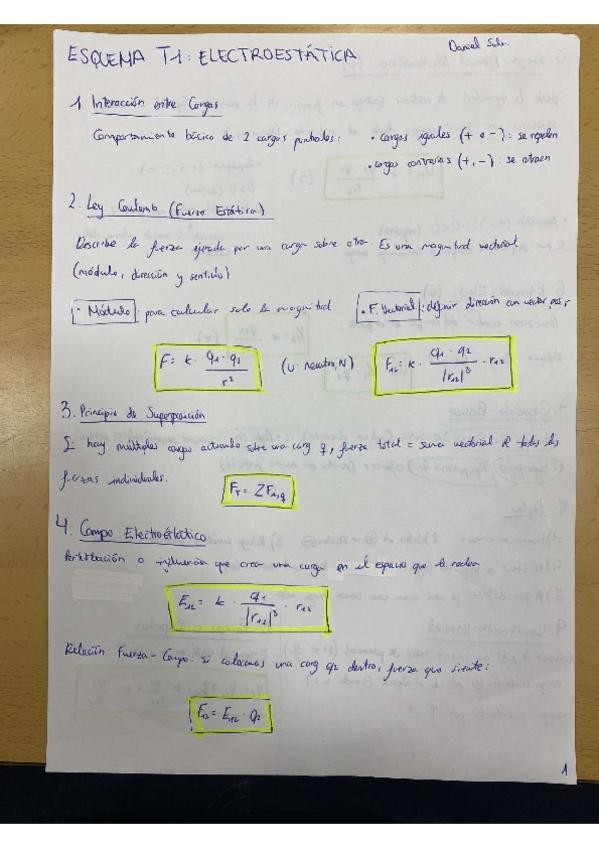 ESQUEMA T1: ELECTROESTÁTICA
Daniel
1. Interacción entre Cargas
Comportamiento básico de 2 cargas puntuales: • cargas iguales (+ o -): se repelen
• cargas contrarias (+, -): se atraen
2. Ley Coulomb (Fuerza Estática)
Describe la fuerza ejercida por una carga sobre otra. Es una magnitud vectorial
(módulo, dirección y sentido)
• Módulo: para calcular solo la magnitud
• F. Vectorial: definir dirección con vector pos, r
F = k · q1 · q2 / r²
(U: newton, N)
F12 = k · q1 · q2 / |r12|³ · r12
3. Principio de Superposición
Si hay múltiples cargas actuando sobre una carg q, fuerza total = suma vectorial de todas las
fuerzas individuales.
FT = ΣFi,q
4. Campo Electroestático
Perturbación o influencia que crea una carga en el espacio que le rodea
E12 = k · q1 / |r12|³ · r12
Relación Fuerza-Campo: si colocamos una carg q2 dentro, fuerza que siente:
F12 = E12 · q2
1